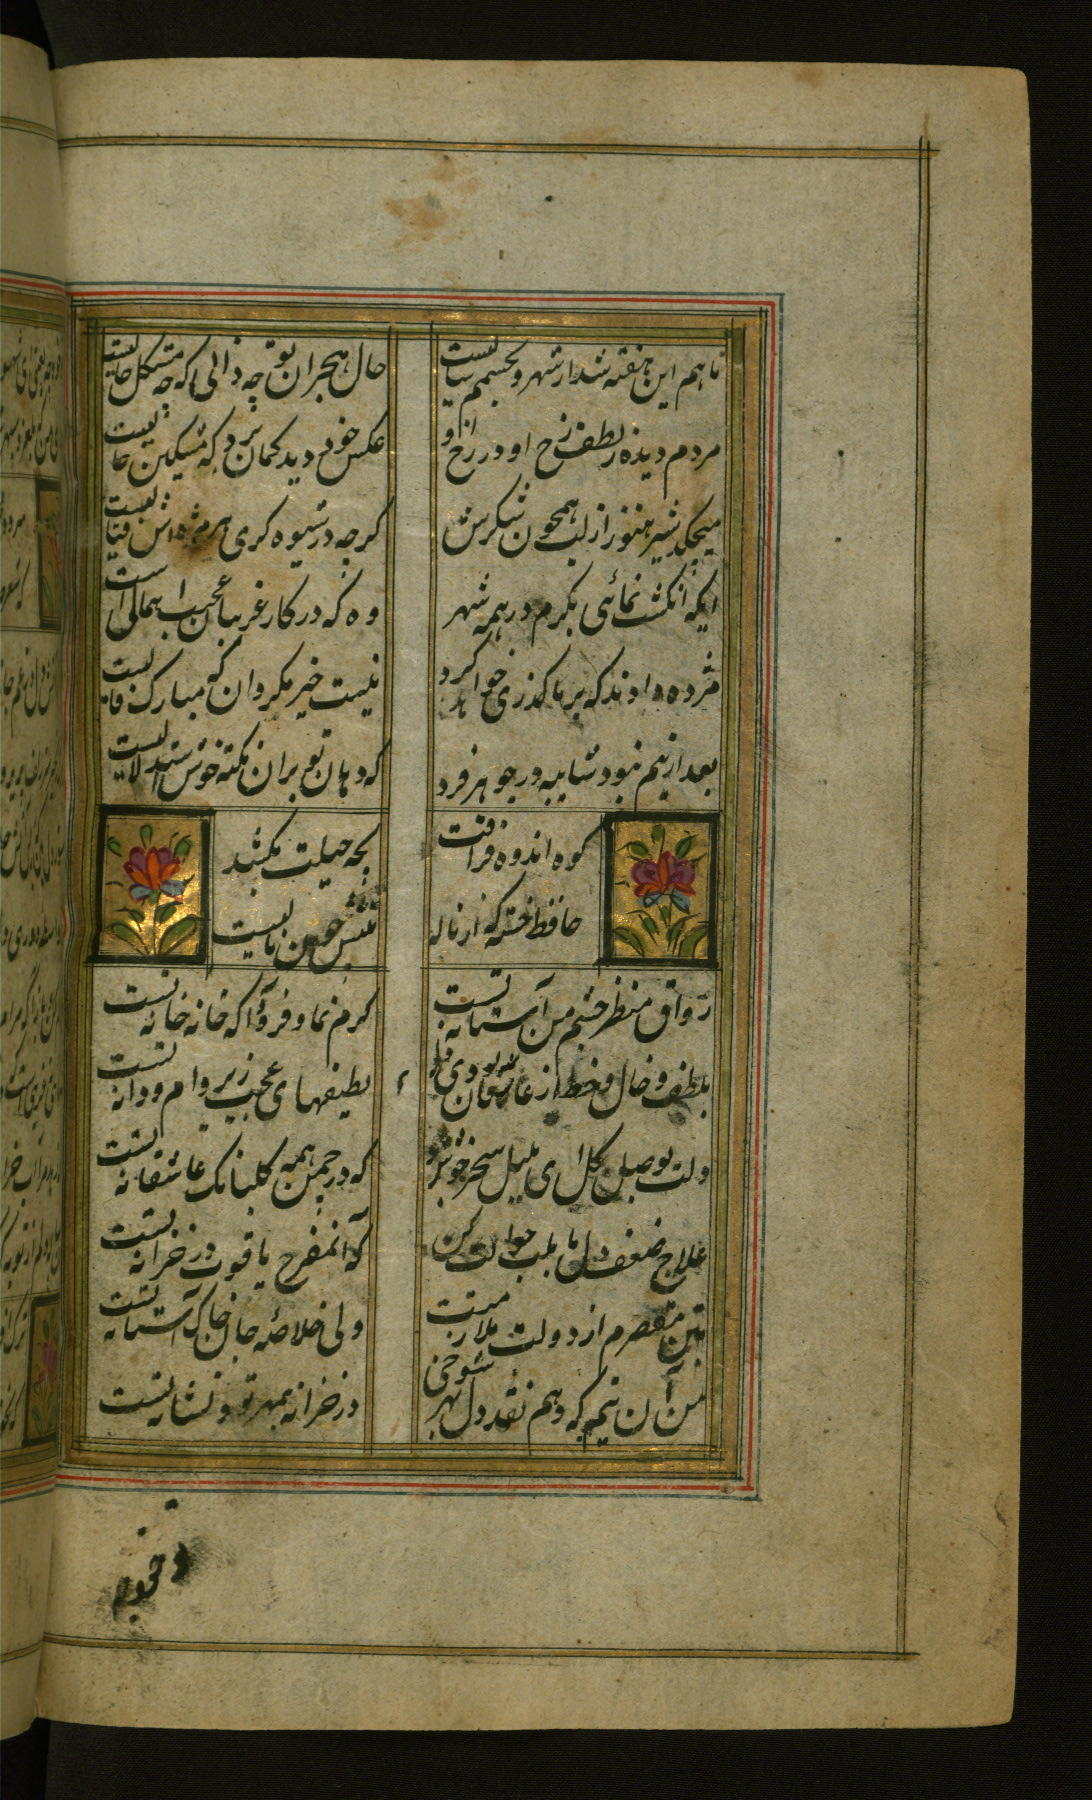 ماهم این هفته شد از شهر و بچشمم سالیست
حال هجران تو چه دانی که چه مشکل حالیست
مردم دیده ز لطف رخ او در رخ او
عکس خود دید گمان برد که مشکین خالیست
میچکد شیر هنوز از لب همچون شکرش
گرچه در شیوه گری هر مژه اش قتالیست
ایکه انگشت نمائی بکرم در همه شهر
وه که در کار غریبان عجب اهمالی است
مژده دادند که بر ما گذری خواهد کرد
نیت خیر مگردان که مبارک فالیست
بعد ازینم نبود شایبه در جوهر فرد
که دهان تو بران نکته خوش استدلالیست
کوه اندوه فراقت
بچه حیلت بکشد
حافظ خسته که از ناله
تنش چون نالیست
رواق منظر چشم من آستانه تست
کرم نما و فرود آ که خانه خانه تست
بلطف خال و خط از عارفان ربودی دل
لطیفهای عجب زیر دام و دانه تست
دلت بوصل گل ای بلبل سحر خوش باد
که در چمن همه گلبانک عاشقانه تست
علاج ضعف دل ما بلب حوالت کن
که آن مفرح یاقوت در خزانه تست
بتن مقصرم از دولت ملازمتت
ولی خلاصه جان خاک آستانه تست
من آن نیم که دهم نقد دل بهر شوخی
در خزانه بمهر تو و نشانه تست